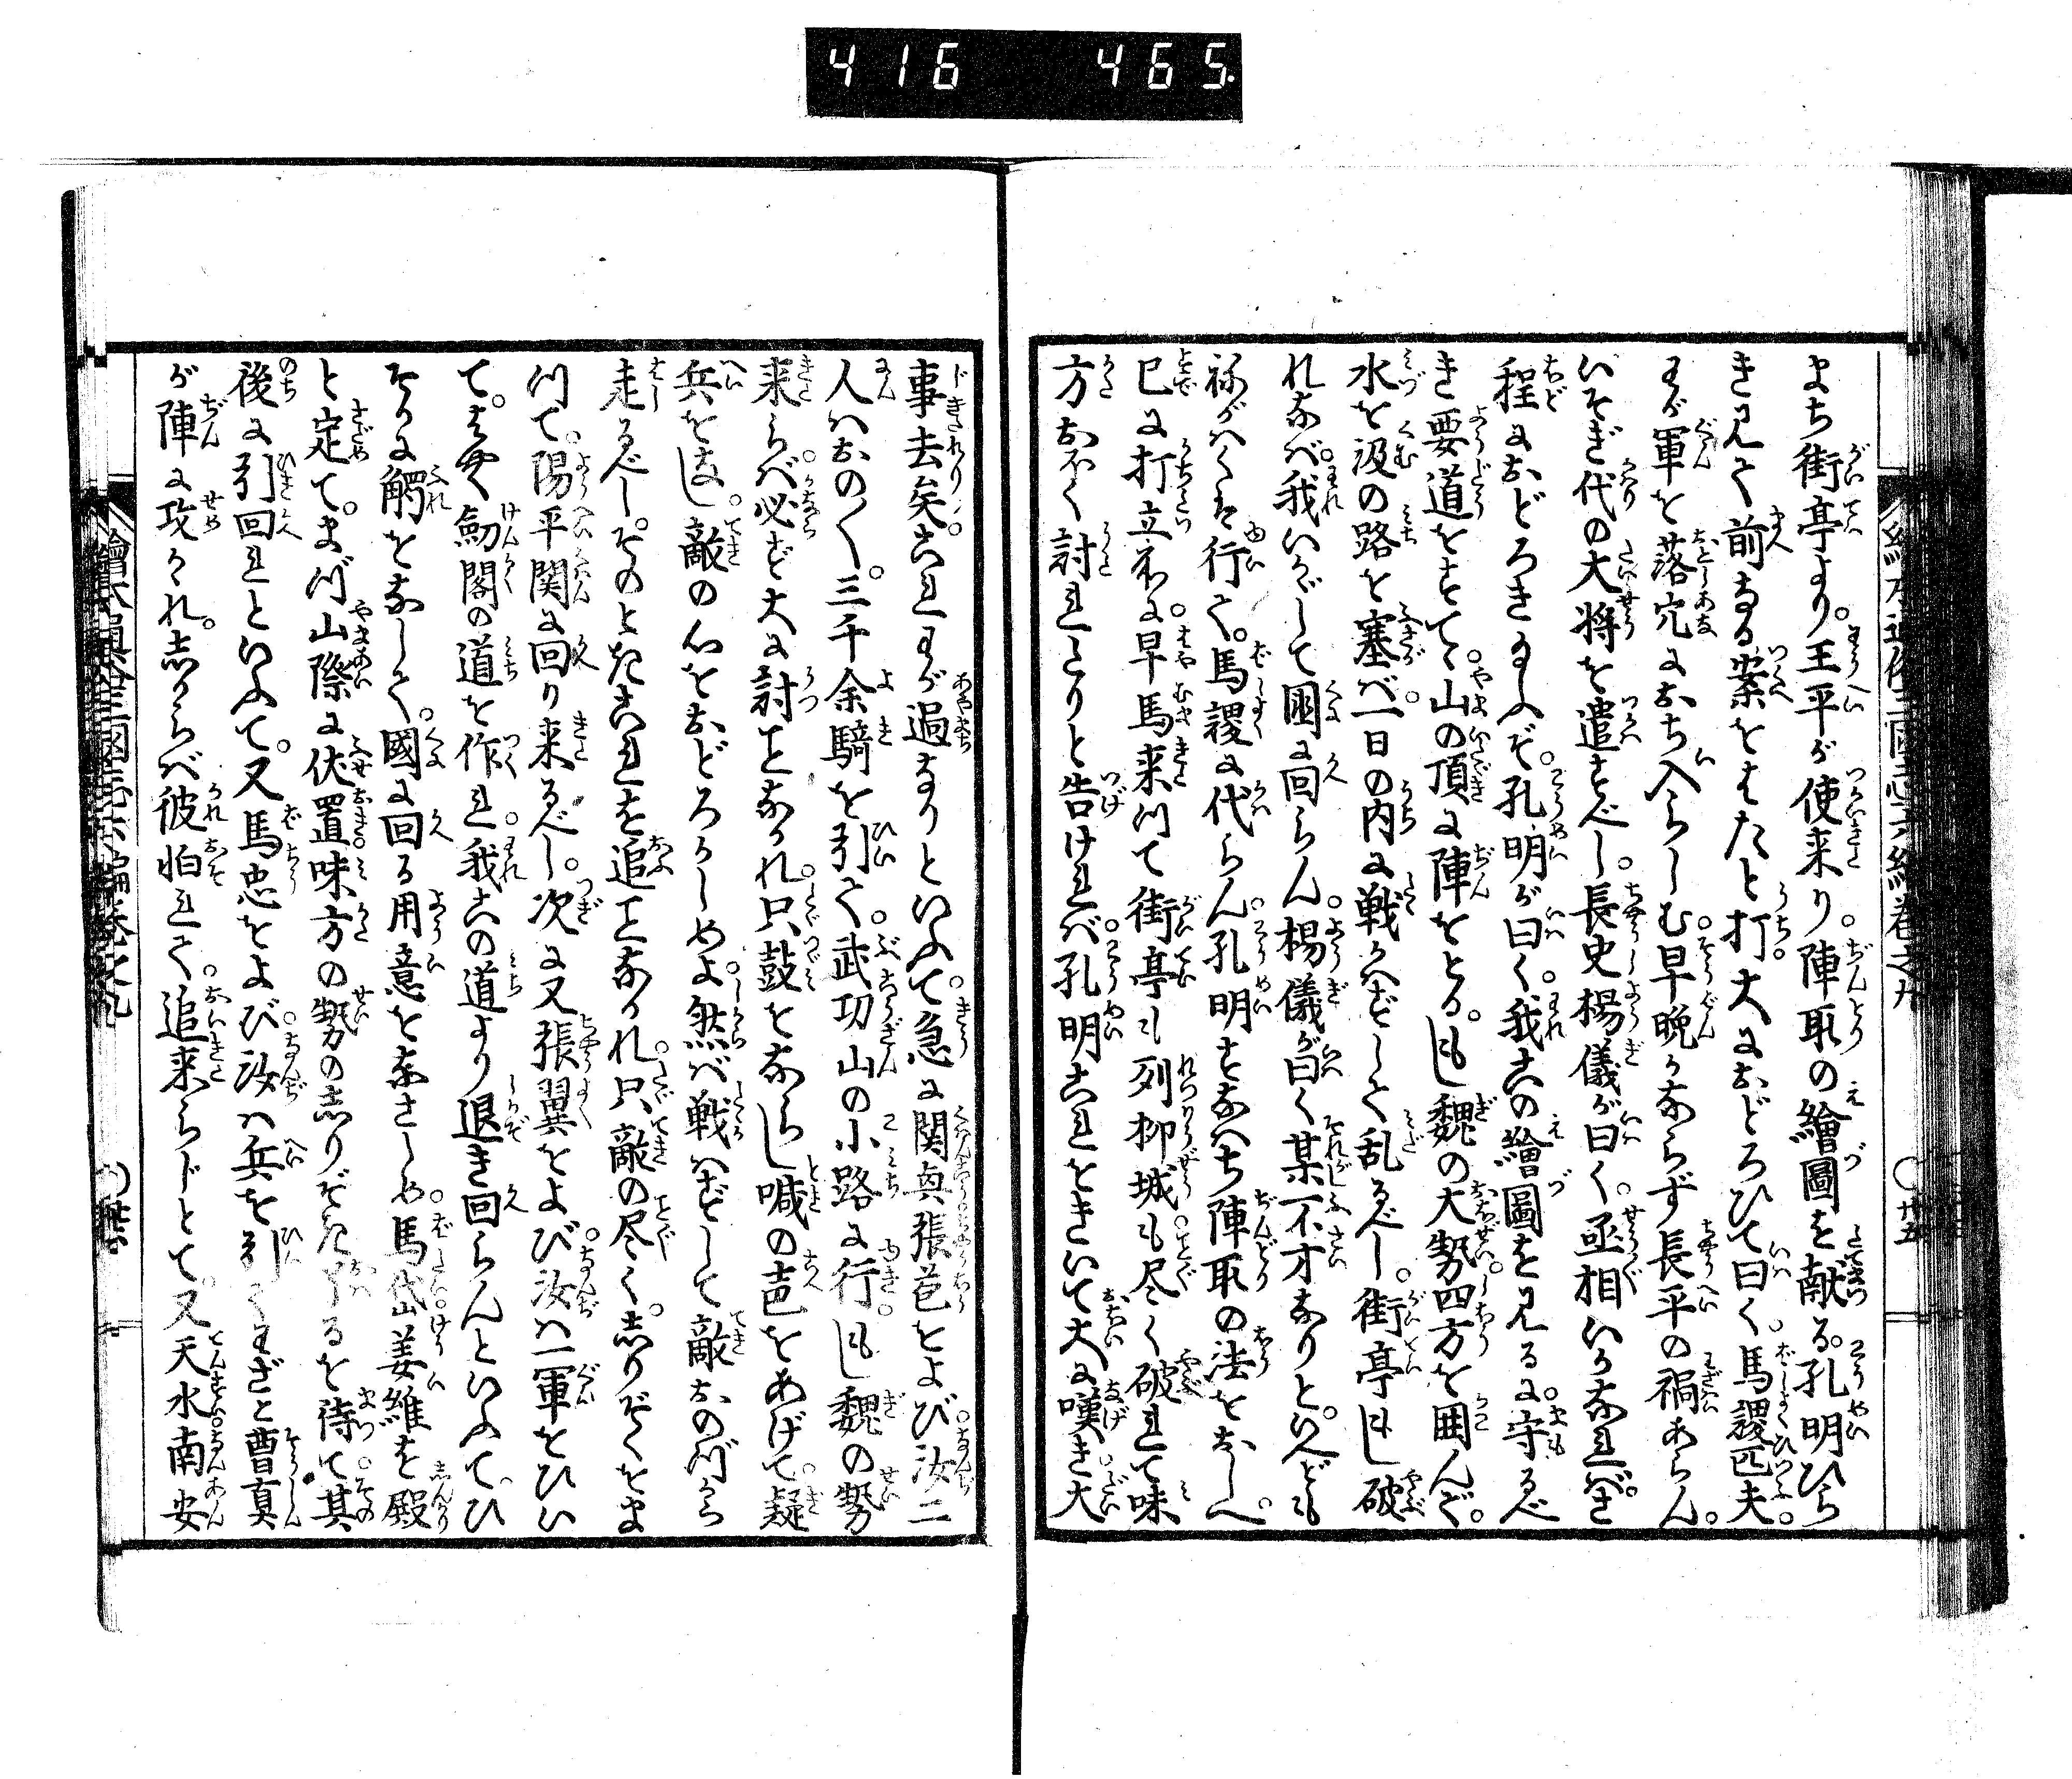 416 465
まち街亭より。王平が使来り。陣取の繪圖を献る。孔明ひら
き見て前なる案をはたと打。大におどろひて曰く。馬謖匹夫。
わが軍を落穴におち入らしむ早晩かならず長平の禍あらん。
いそぎ代の大将を遣すべし。長史楊儀が曰く。丞相いかなればさ
程におどろき給ふぞ。孔明が曰く。我此の繪圖を見るに。守るべ
き要道をすてゝ。山の頂に陣をとる。もし魏の大勢四方を囲んで。
水を汲の路を塞がば。一日の内に戦はずして乱るべし。街亭もし破
れなば。我いかゞして國に回らん。楊儀が曰く某不才なりといへども
祢がはくは行て。馬謖に代らん。孔明すなはち陣取の法をおしへ。
已に打立不に。早馬来つて街亭も列柳城も。尽く破れて味
方おほく討れたりと告ければ。孔明これをきいて大に嘆き。大
事去矣。これわが過なりといふて。急に関興張苞をよび。汝二
人はおの〱。三千余騎を引て。武功山の小路に行。もし魏の勢
来らば。必ず大に討ことなかれ。只鼓をならし喊の声をあげて。疑
兵をなし。敵の心をおどろかしめよ。然ば戦はずして敵おのづから
走るべし。そのときこれを追ことなかれ。只敵の尽く。志りぞくをま
つて。陽平関に回り来るべし。次に又張翼をよび。汝は一軍をひい
て。はやく剱閣の道を作れ。我此の道より退き回らんといふて。ひ
そかに觸をなして。國に回る用意をなさしめ。馬岱。姜維を殿
と定て。まづ山際に伏置。味方の勢の志りぞき
るを待て。其
後に引回れといふて。又馬忠をよび。汝は兵を引てわざと曹真
が陣に攻かゝれ。志からば彼怕れて。追来らじとて。又天水南安